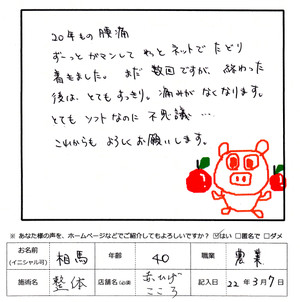 20年もの腰痛
ずーっとガマンしてやっとネットでたどり
着きました。まだ数回ですが、終わった
後は、とてもすっきり。痛みがなくなります。
とてもソフトなのに不思議…
これからもよろしくお願いします。
※ あなた様の声を、ホームページなどでご紹介してもよろしいですか? ☑はい □匿名で □ダメ
お名前 (イニシャル可) 相馬 年齢 40 職業 農業
施術名 整体 店舗名(必須) 赤ひげこころ 記入日 22年3月7日